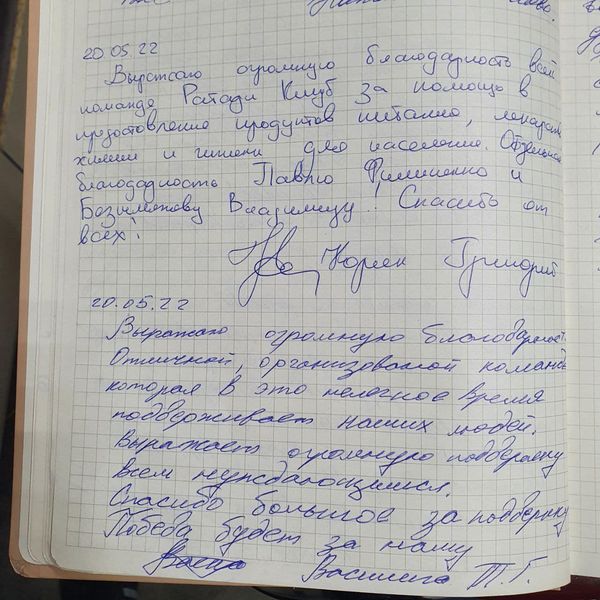 20.05.22
Выражаю огромную благодарность всей
команде Ратади Клуб за помощь в
предоставление продуктов питание, лекарств
химии и гигиени для население. Отдельная
благодарность Павлю Филипенко и
Владимиру! Спасибо от
всех!
Григорий
20.05.22
Выражаю огромную благодарность
Отличной, организованой команде
которая в это нелегкое время
поддерживает наших людей.
Выражает огромную поддержку
всем нуждающимся.
Спасибо большое за поддержку
Победа будет за нами
Т.Г.